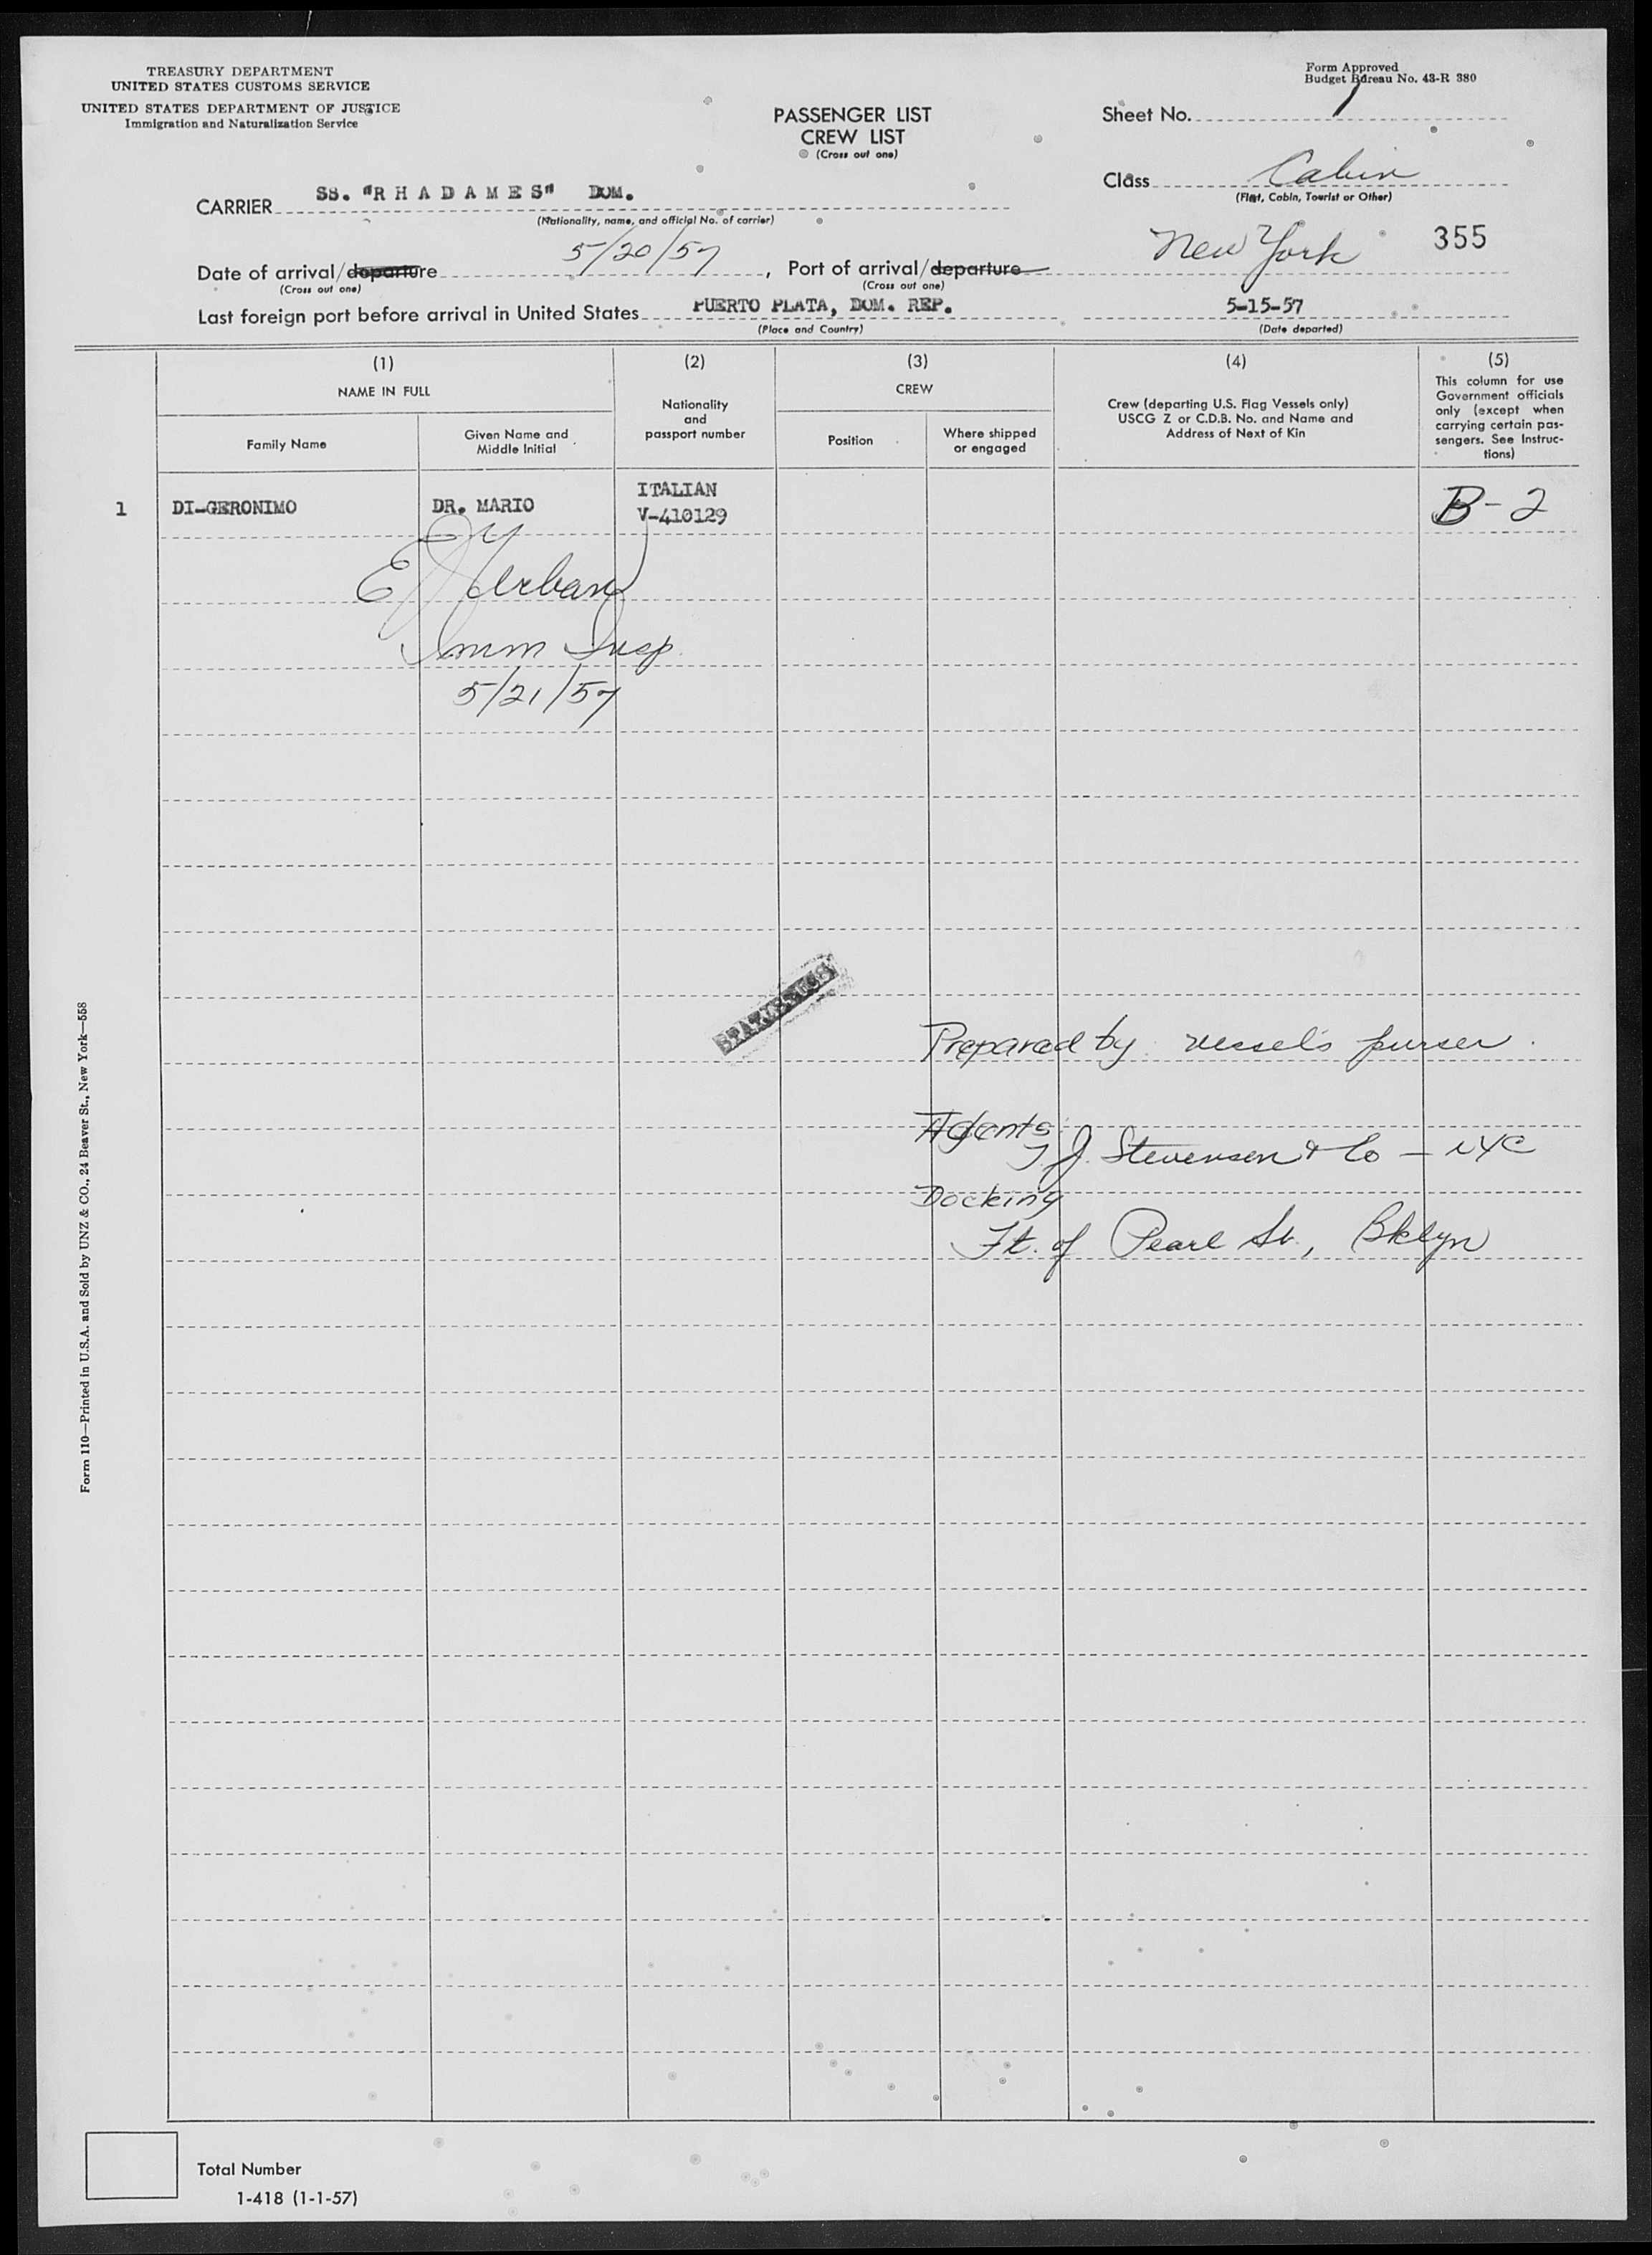 TREASURY DEPARTMENT
UNITED STATES CUSTOMS SERVICE
UNITED STATES DEPARTMENT OF JUSTICE
Immigration and Naturalization Service
Form Approved
Budget Bureau No. 43-R 380
PASSENGER LIST
CREW LIST
(Cross out one)
Sheet No. 1
Class Cabin
(First, Cabin, Tourist or Other)
CARRIER SS. "R H A D A M E S" DOM.
(Nationality, name, and official No. of carrier)
Date of arrival/departure 5/20/57, Port of arrival/departure New York 355
(Cross out one) (Cross out one)
Last foreign port before arrival in United States PUERTO PLATA, DOM. REP. 5-15-57
(Place and Country) (Date departed)
(1) (2) (3) (4) (5)
NAME IN FULL
Family Name
Given Name and
Middle Initial
Nationality
and
passport number
CREW
Position
Where shipped
or engaged
Crew (departing U.S. Flag Vessels only)
USCG Z or C.D.B. No. and Name and
Address of Next of Kin
This column for use
Government officials
only (except when
carrying certain pas-
sengers. See Instruc-
tions)
1 DI-GERONIMO DR. MARIO ITALIAN
V-410129 B-2
Imm Insp
5/21/57
STATISTICS
Prepared by vessels purser.
Agents:
T J. Stevenson & Co - NYC
Docking
Ft. of Pearl St., Bklyn
Form 110—Printed in U.S.A. and Sold by UNZ & CO., 24 Beaver St., New York—558
Total Number
1-418 (1-1-57)